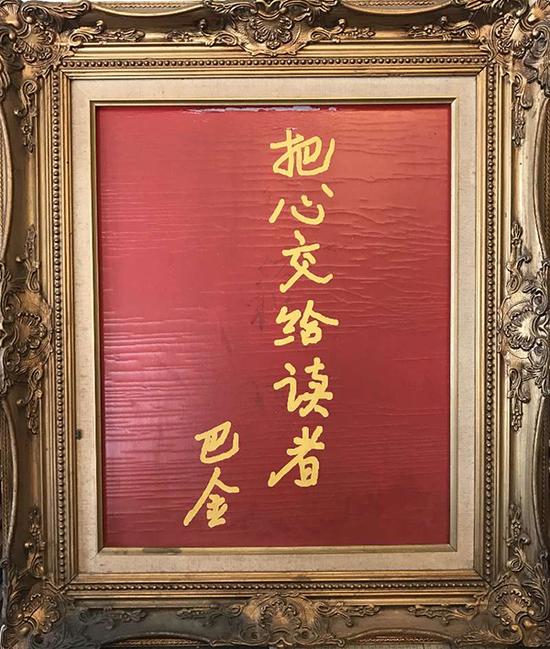 把心交给读者
巴金